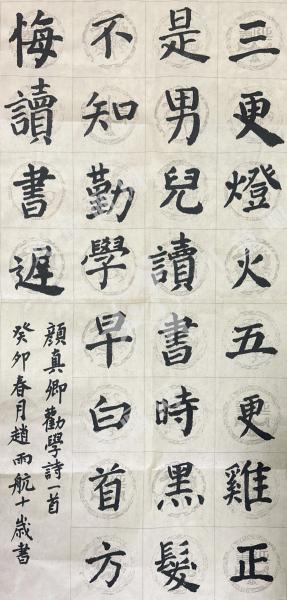 三更燈火五更雞正
是男兒讀書時黑髮
不知勤學早白首方
悔讀書遲
顔真卿勸學詩一首
癸卯春月趙雨航十歲書